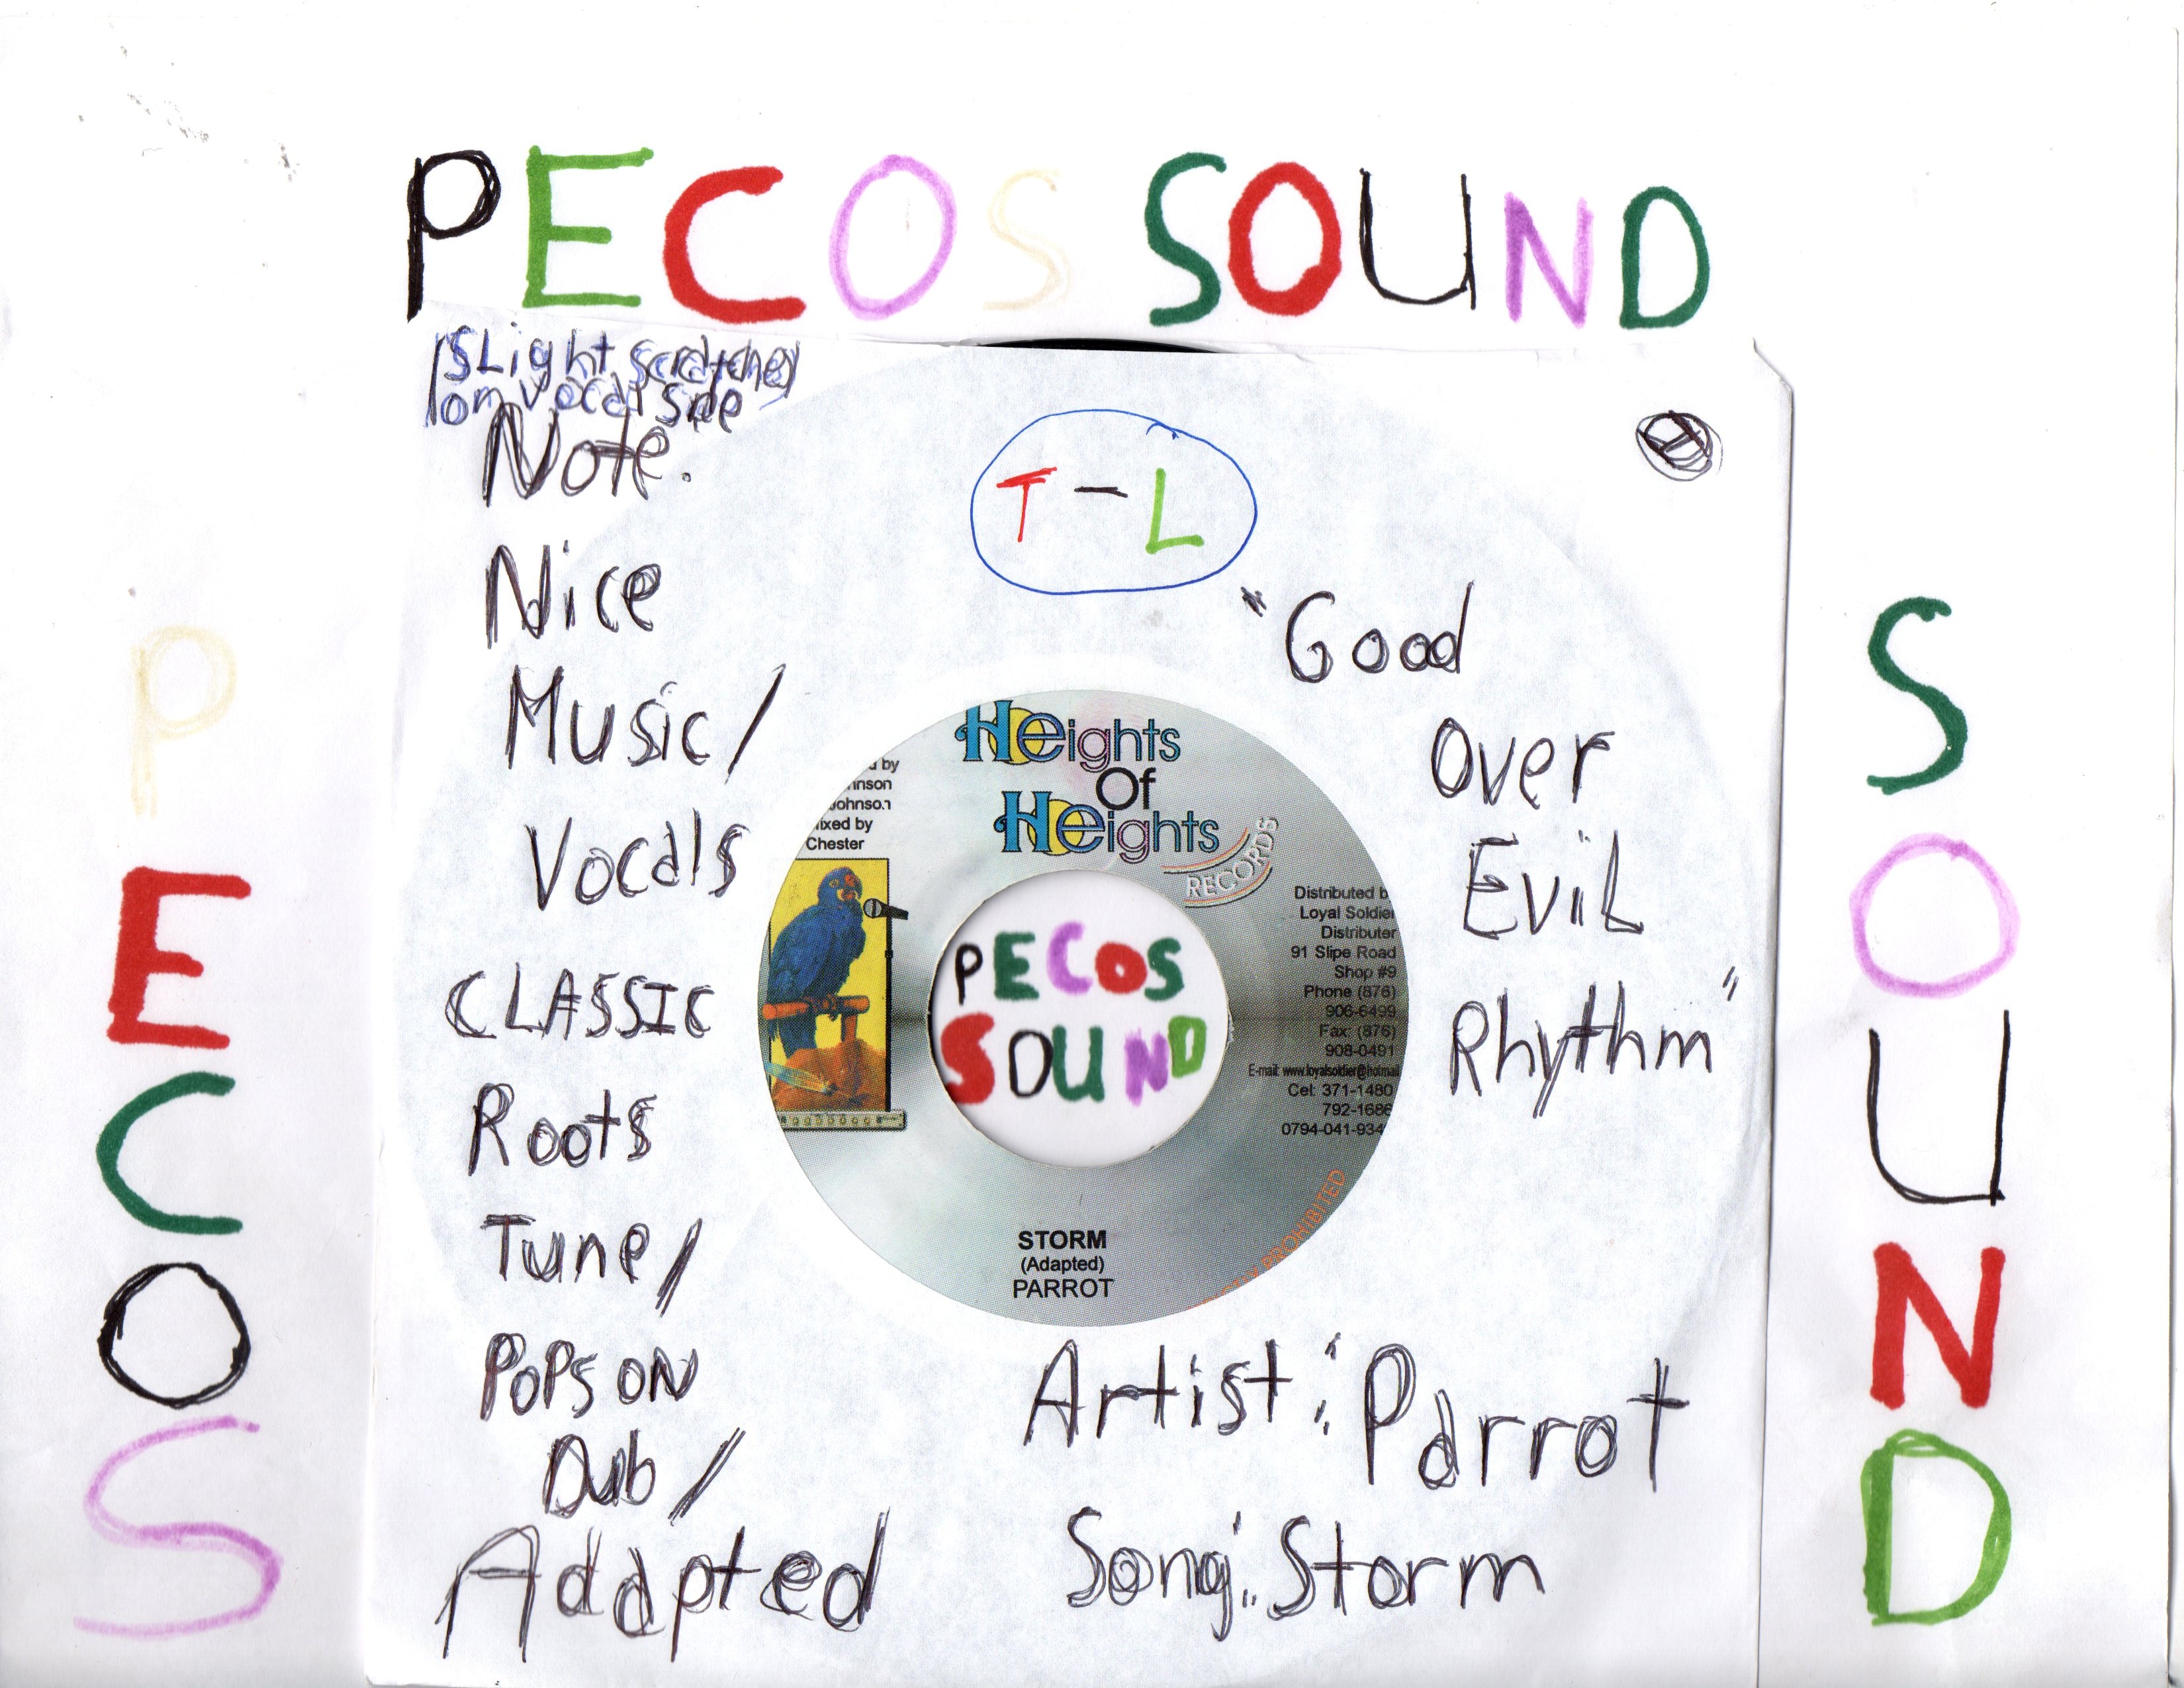 PECOS SOUND
SLight scratches
on vocal side
Note.
Nice
Music/
Vocals
CLASSIC
Roots
Tune/
POPS ON
Dub/
Adapted
T-L
"Good
Over
Evil
Rhythm"
Heights
Of
Heights
RECORDS
d by
nnson
Johnson
ixed by
Chester
Distributed b
Loyal Soldier
Distributer
91 Slipe Road
Shop #9
Phone (876)
906-6499
Fax: (876)
908-0491
E-mail: www.loyalsoldier@hotmail
Cel: 371-1480
792-1686
0794-041-934
PROHIBITED
PECOS
SOUND
STORM
(Adapted)
PARROT
Artist: "Parrot
Song: Storm
PECOS
SOUND